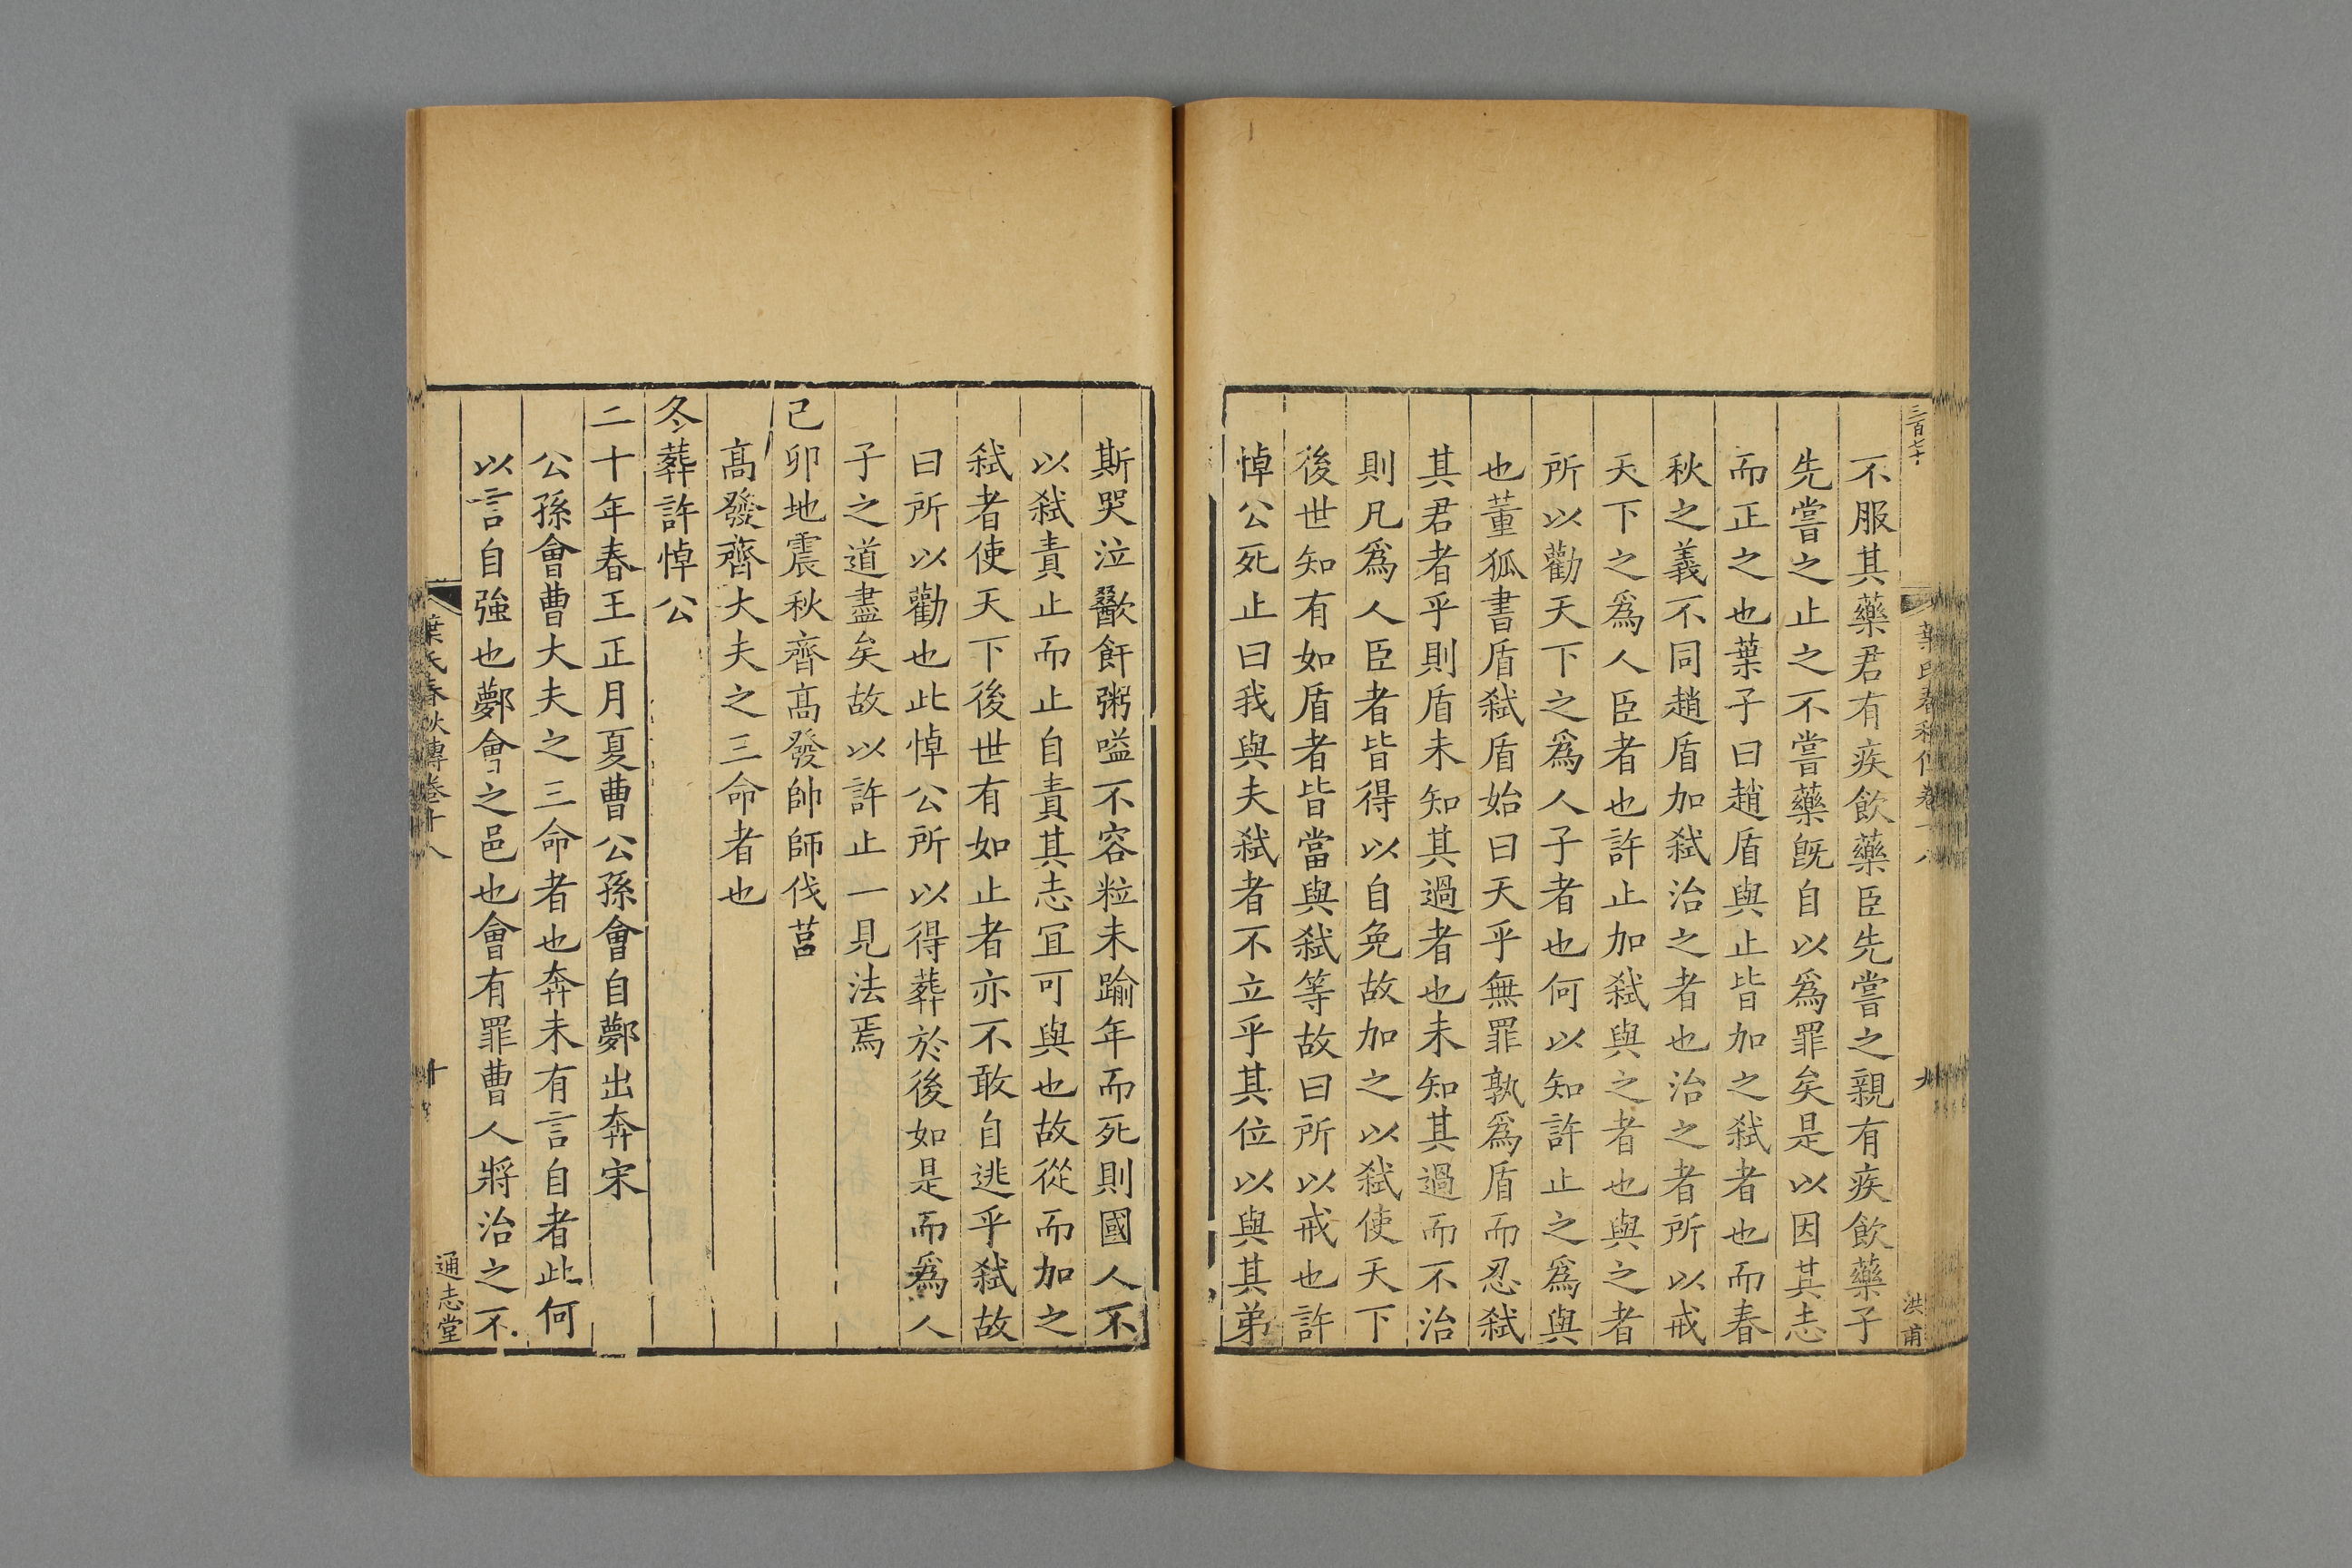 三百七十
葉氏春秋傳卷十八
九
洪甫
不服其藥君有疾飲藥臣先嘗之親有疾飲藥子
先嘗之止之不嘗藥旣自以爲罪矣是以因其志
而正之也葉子曰趙盾與止皆加之弑者也而春
秋之義不同趙盾加弑治之者也治之者所以戒
天下之爲人臣者也許止加弑與之者也與之者
所以勸天下之爲人子者也何以知許止之爲與
也董狐書盾弑盾始曰天乎無罪孰爲盾而忍弑
其君者乎則盾未知其過者也未知其過而不治
則凡爲人臣者皆得以自免故加之以弑使天下
後世知有如盾者皆當與弑等故曰所以戒也許
悼公死止曰我與夫弑者不立乎其位以與其弟
斯哭泣歠飦粥嗌不容粒未踰年而死則國人不
以弑責止而止自責其志冝可與也故從而加之
弑者使天下後世有如止者亦不敢自逃乎弑故
曰所以勸也此悼公所以得葬於後如是而爲人
子之道盡矣故以許止一見法焉
己卯地震秋齊髙發帥師伐莒
髙發齊大夫之三命者也
冬葬許悼公
二十年春王正月夏曹公孫會自鄸出奔宋
公孫會曹大夫之三命者也奔未有言自者此何
以言自強也鄸會之邑也會有罪曹人將治之不
葉氏春秋傳卷十八
十
通志堂